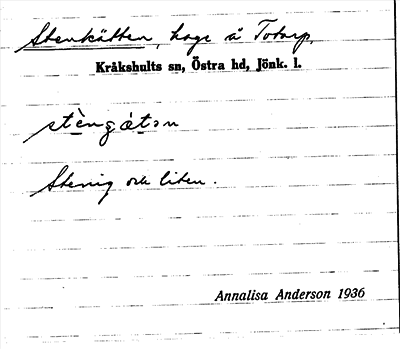 Stenkätten, hage å Totarp,
Kråkshults sn, Östra hd, Jönk. l.
stèngǽtən
Stenig och liten.
Annalisa Anderson 1936